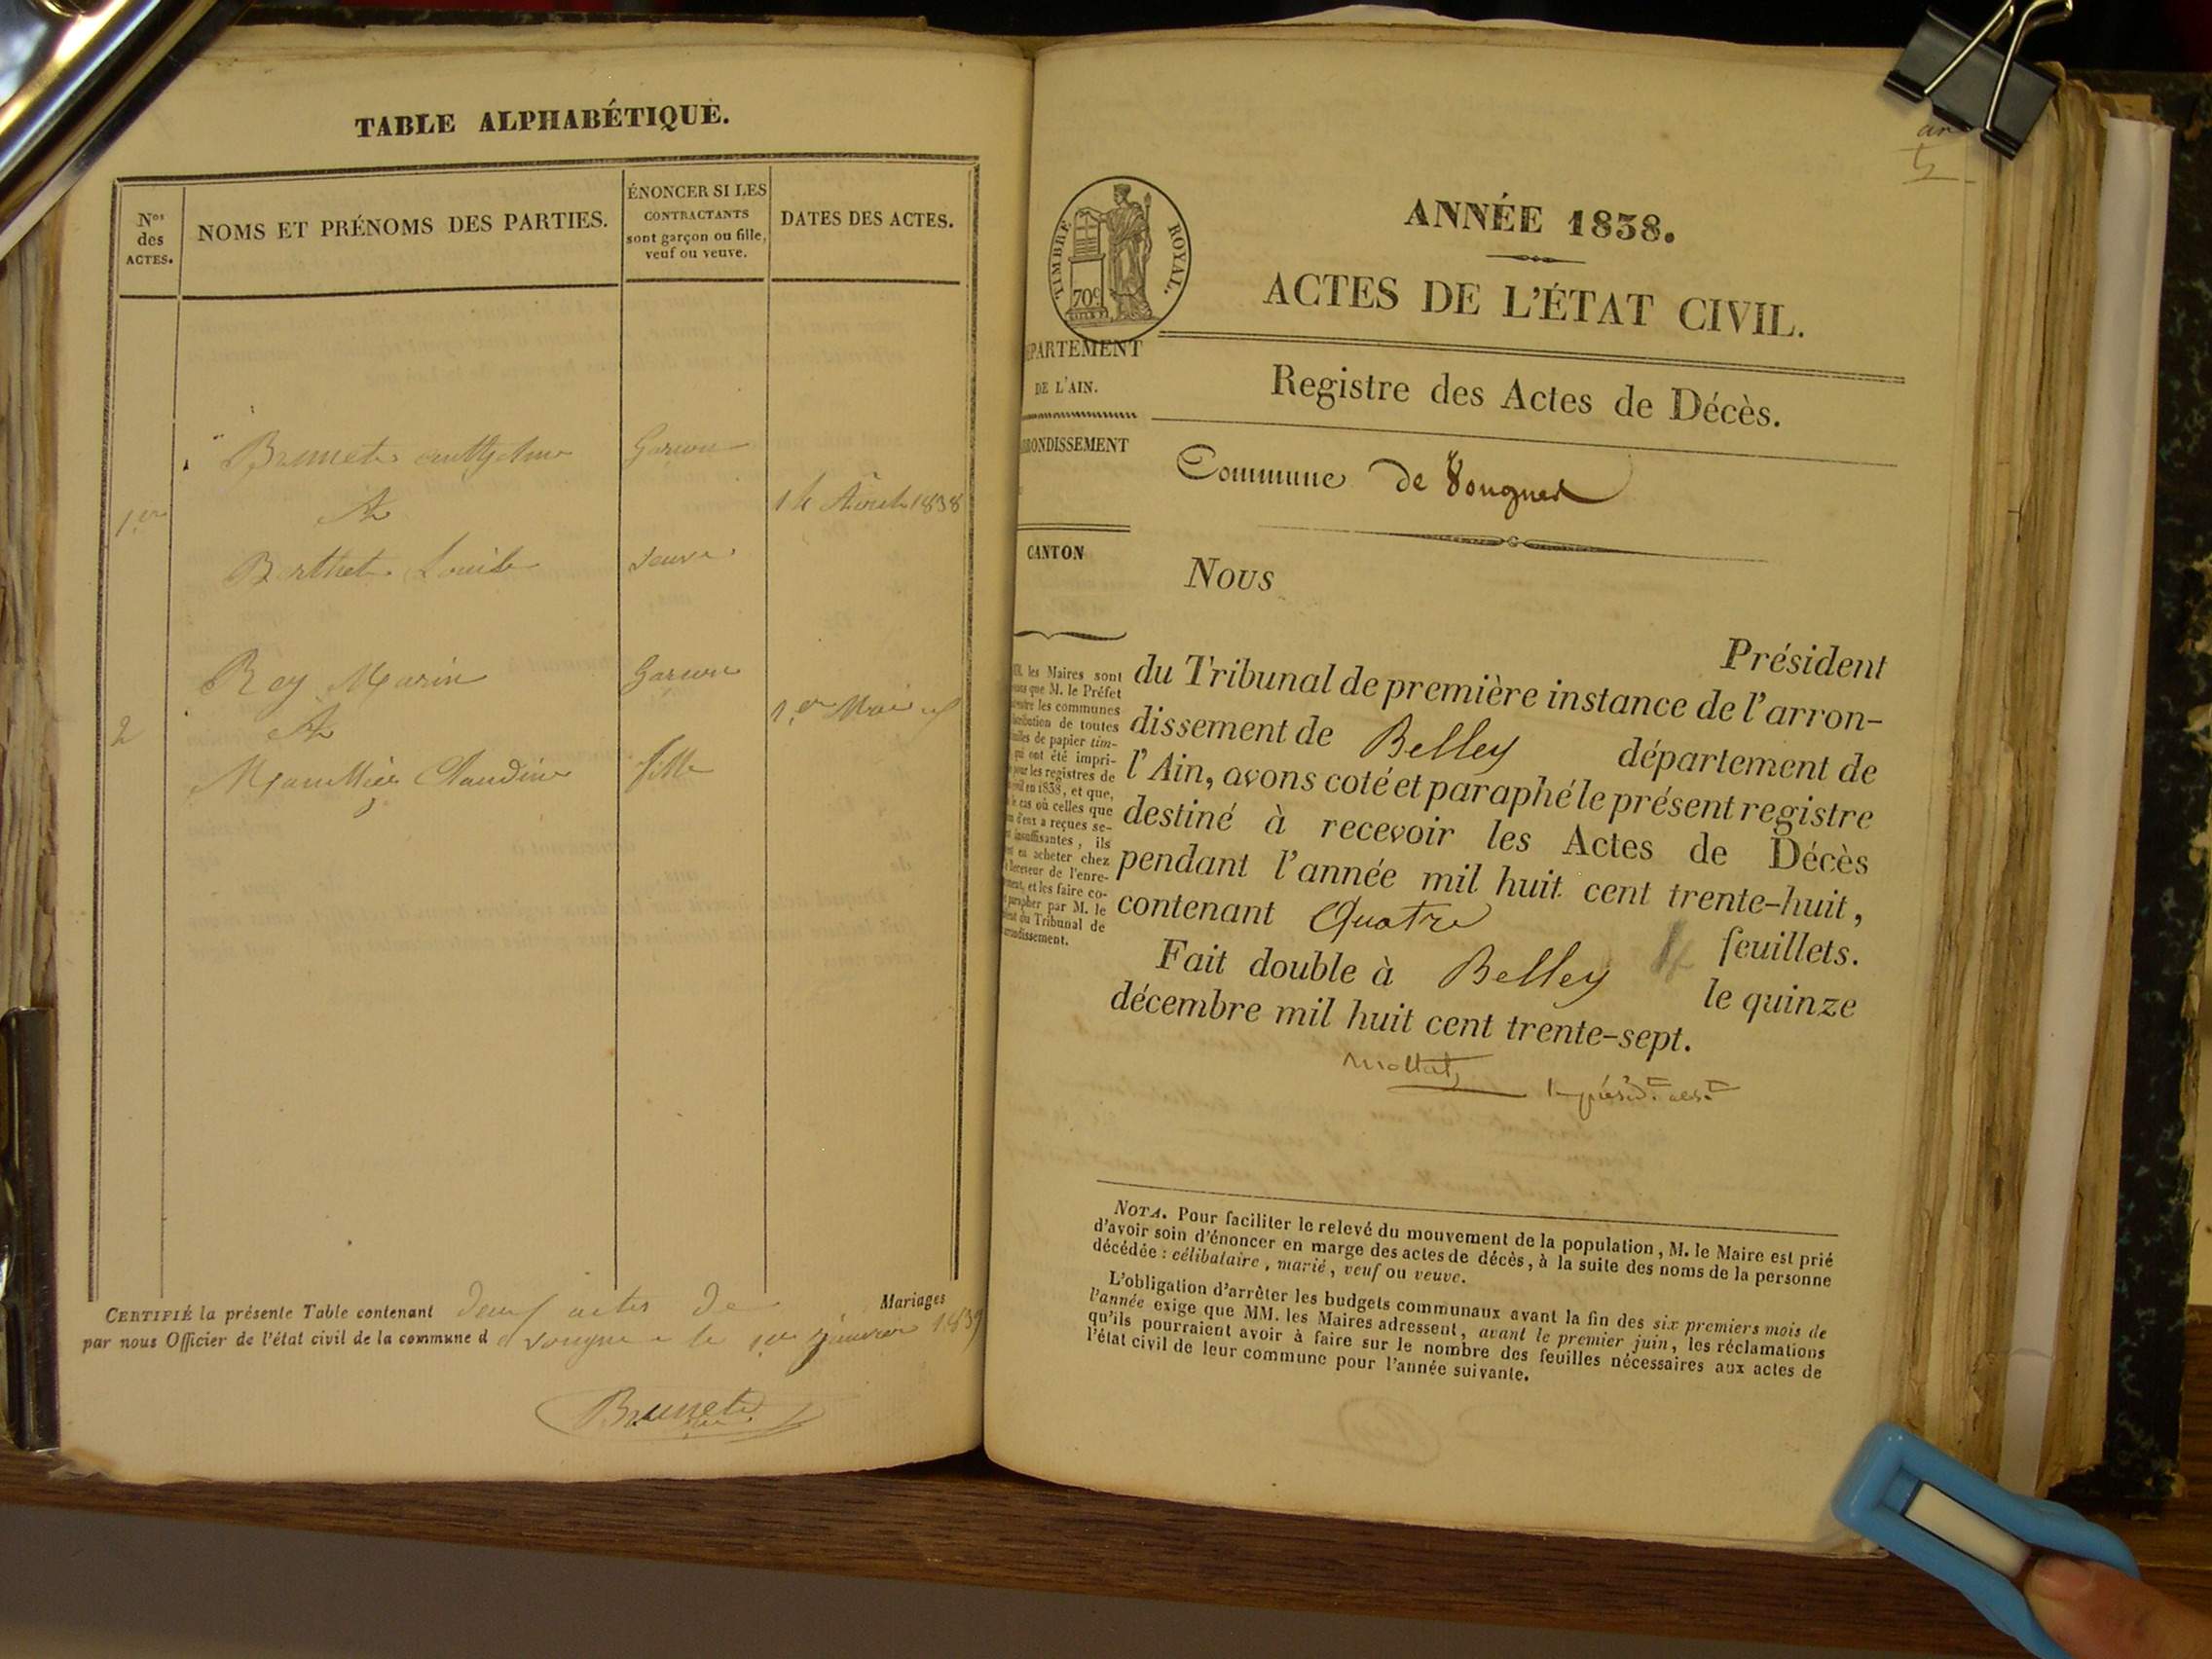 TABLE ALPHABÉTIQUE.
Nos des ACTES.
NOMS ET PRÉNOMS DES PARTIES.
ÉNONCER SI LES
CONTRACTANTS
sont garçon ou fille,
veuf ou veuve.
DATES DES ACTES.
Brunet Anthelme
Garçon
1er
&
14 Août 1838
Berthet Louise
veuve
Rey Marin
Garçon
2
&
1er Mai
Claudine
fille
CERTIFIÉ la présente Table contenant deux actes de Mariages
par nous Officier de l'état civil de la commune d vongne le 1er janvier 1839
Brunet
an
ANNÉE 1838.
TIMBRE ROYAL.
70c
ACTES DE L'ÉTAT CIVIL.
PARTEMENT
DE L'AIN.
Registre des Actes de Décès.
RONDISSEMENT
Commune de Vongnes
CANTON
Nous
Président
du Tribunal de première instance de l'arron-
dissement de Belley département de
l'Ain, avons coté et paraphé le présent registre
destiné à recevoir les Actes de Décès
pendant l'année mil huit cent trente-huit,
contenant Quatre feuillets.
Fait double à Belley le quinze
décembre mil huit cent trente-sept.
les Maires sont
que M. le Préfet
les communes
de toutes
de papier tim-
qui ont été impri-
pour les registres de
en 1838, et que,
le cas où celles que
d'eux a reçues se-
insuffisantes, ils
en acheter chez
de l'enre-
et les faire co-
parapher par M. le
du Tribunal de
Mottet
NOTA. Pour faciliter le relevé du mouvement de la population, M. le Maire est prié
d'avoir soin d'énoncer en marge des actes de décès, à la suite des noms de la personne
décédée : célibataire, marié, veuf ou veuve.
L'obligation d'arrêter les budgets communaux avant la fin des six premiers mois de
l'année exige que MM. les Maires adressent, avant le premier juin, les réclamations
qu'ils pourraient avoir à faire sur le nombre des feuilles nécessaires aux actes de
l'état civil de leur commune pour l'année suivante.